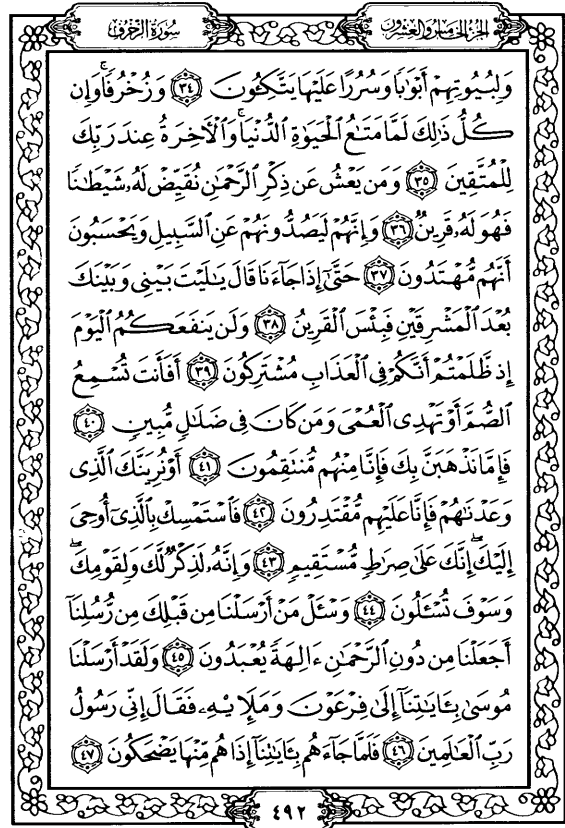 سورة الزخرف
الجزء الخامس والعشرون
وَلِبُيُوتِهِمْ أَبْوَٰبًا وَسُرُرًا عَلَيْهَا يَتَّكِـُٔونَ ٣٤ وَزُخْرُفًا ۚ وَإِن
كُلُّ ذَٰلِكَ لَمَّا مَتَـٰعُ الْحَيَوٰةِ الدُّنْيَا ۚ وَالْـَٔاخِرَةُ عِندَ رَبِّكَ
لِلْمُتَّقِينَ ٣٥ وَمَن يَعْشُ عَن ذِكْرِ الرَّحْمَـٰنِ نُقَيِّضْ لَهُۥ شَيْطَـٰنًا
فَهُوَ لَهُۥ قَرِينٌ ٣٦ وَإِنَّهُمْ لَيَصُدُّونَهُمْ عَنِ السَّبِيلِ وَيَحْسَبُونَ
أَنَّهُم مُّهْتَدُونَ ٣٧ حَتَّىٰٓ إِذَا جَآءَنَا قَالَ يَـٰلَيْتَ بَيْنِى وَبَيْنَكَ
بُعْدَ الْمَشْرِقَيْنِ فَبِئْسَ الْقَرِينُ ٣٨ وَلَن يَنفَعَكُمُ الْيَوْمَ
إِذ ظَّلَمْتُمْ أَنَّكُمْ فِى الْعَذَابِ مُشْتَرِكُونَ ٣٩ أَفَأَنتَ تُسْمِعُ
الصُّمَّ أَوْ تَهْدِى الْعُمْىَ وَمَن كَانَ فِى ضَلَـٰلٍ مُّبِينٍ ٤٠
فَإِمَّا نَذْهَبَنَّ بِكَ فَإِنَّا مِنْهُم مُّنتَقِمُونَ ٤١ أَوْ نُرِيَنَّكَ الَّذِى
وَعَدْنَـٰهُمْ فَإِنَّا عَلَيْهِم مُّقْتَدِرُونَ ٤٢ فَاسْتَمْسِكْ بِالَّذِىٓ أُوحِىَ
إِلَيْكَ ۖ إِنَّكَ عَلَىٰ صِرَٰطٍ مُّسْتَقِيمٍ ٤٣ وَإِنَّهُۥ لَذِكْرٌ لَّكَ وَلِقَوْمِكَ ۖ
وَسَوْفَ تُسْـَٔلُونَ ٤٤ وَسْـَٔلْ مَنْ أَرْسَلْنَا مِن قَبْلِكَ مِن رُّسُلِنَآ
أَجَعَلْنَا مِن دُونِ الرَّحْمَـٰنِ ءَالِهَةً يُعْبَدُونَ ٤٥ وَلَقَدْ أَرْسَلْنَا
مُوسَىٰ بِـَٔايَـٰتِنَآ إِلَىٰ فِرْعَوْنَ وَمَلَإِي۟هِۦ فَقَالَ إِنِّى رَسُولُ
رَبِّ الْعَـٰلَمِينَ ٤٦ فَلَمَّا جَآءَهُم بِـَٔايَـٰتِنَآ إِذَا هُم مِّنْهَا يَضْحَكُونَ ٤٧
٤٩٢